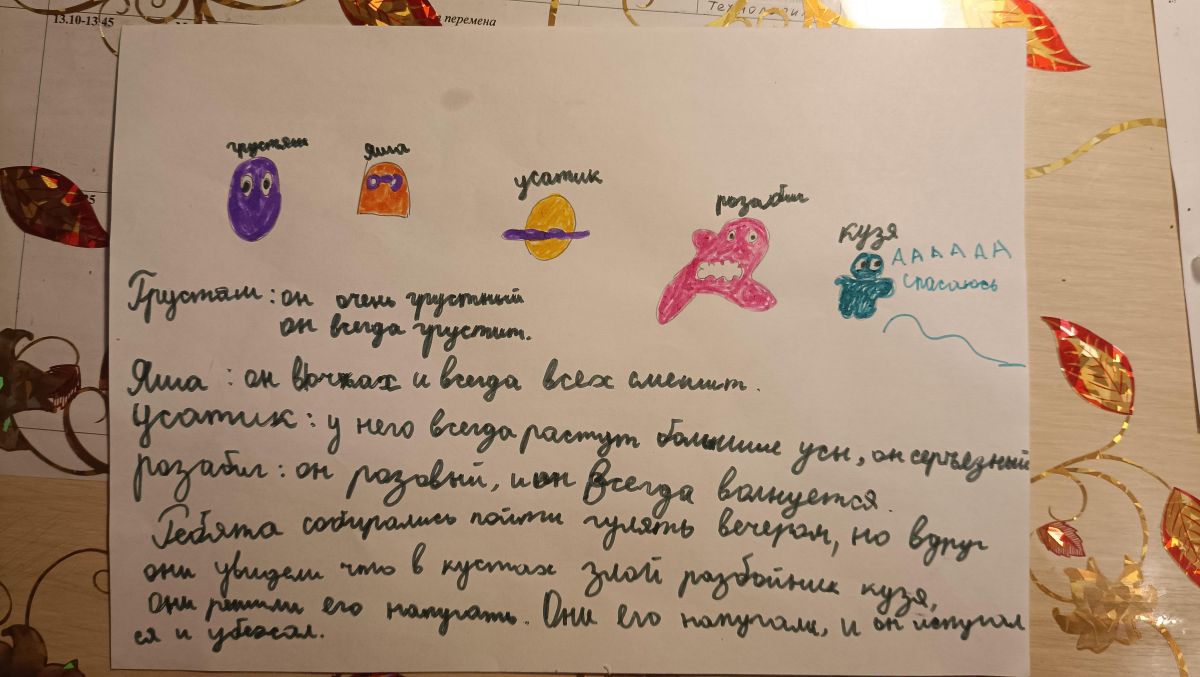 13.10-13.45
перемена
Технология
грустяш
яша
усатик
розабыл
кузя
АААААА
спасаюсь
Грустяш: он очень грустный
он всегда грустит.
Яша: он в очках и всегда всех смешит.
усатик: у него всегда растут большие усы, он серъезный
розабыл: он розовый, и он Всегда волнуется.
Ребята собирались пойти гулять вечером, но вдруг
они увидели что в кустах злой разбойник кузя,
они решили его напугать. Они его напугали, и он испугал
ся и убежал.